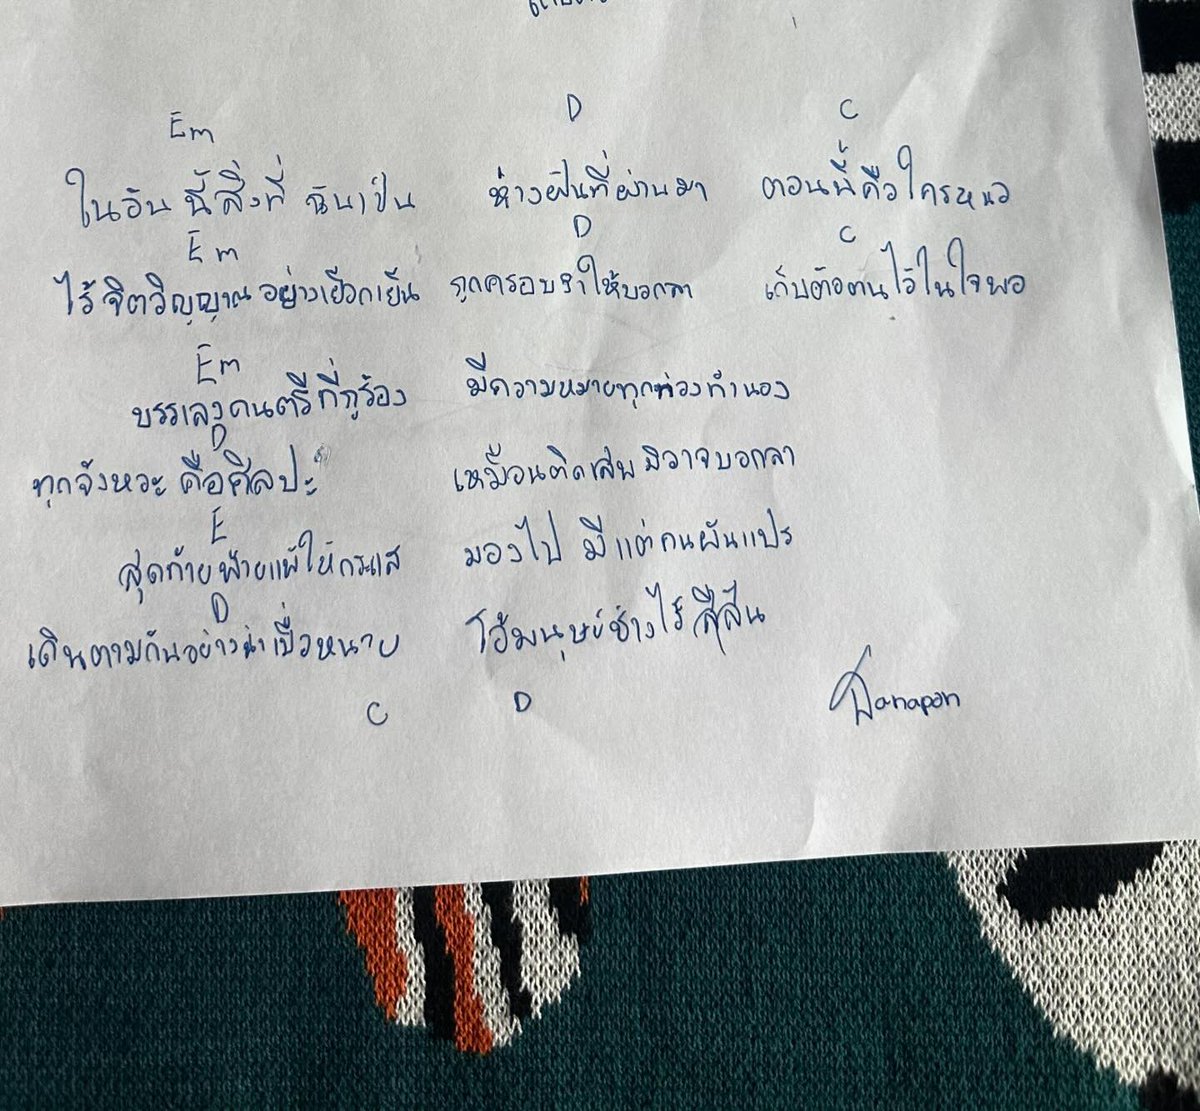 Em D C
ในวัน นี้สิ่งที่ ฉันเป็น ห่างฝันที่ผ่านมา ตอนนี้คือใครหนอ
Em D C
ไร้จิตวิญญาณ อย่างเยือกเย็น ถูกครอบงำให้บอกลา เก็บตัวตนไว้ในใจพอ
Em
บรรเลงดนตรีที่กูร้อง มีความหมายทุกท่วงทำนอง
D
ทุกจังหวะ คือศิลปะ เหมือนติดเสพ มิวาจบอกลา
E
สุดท้ายพ่ายแพ้ให้กระแส มองไป มีแต่คนผันแปร
D
เดินตามกันอย่างน่าเบื่อหน่าย โอ้มนุษย์ช่างไร้สีสัน
C D